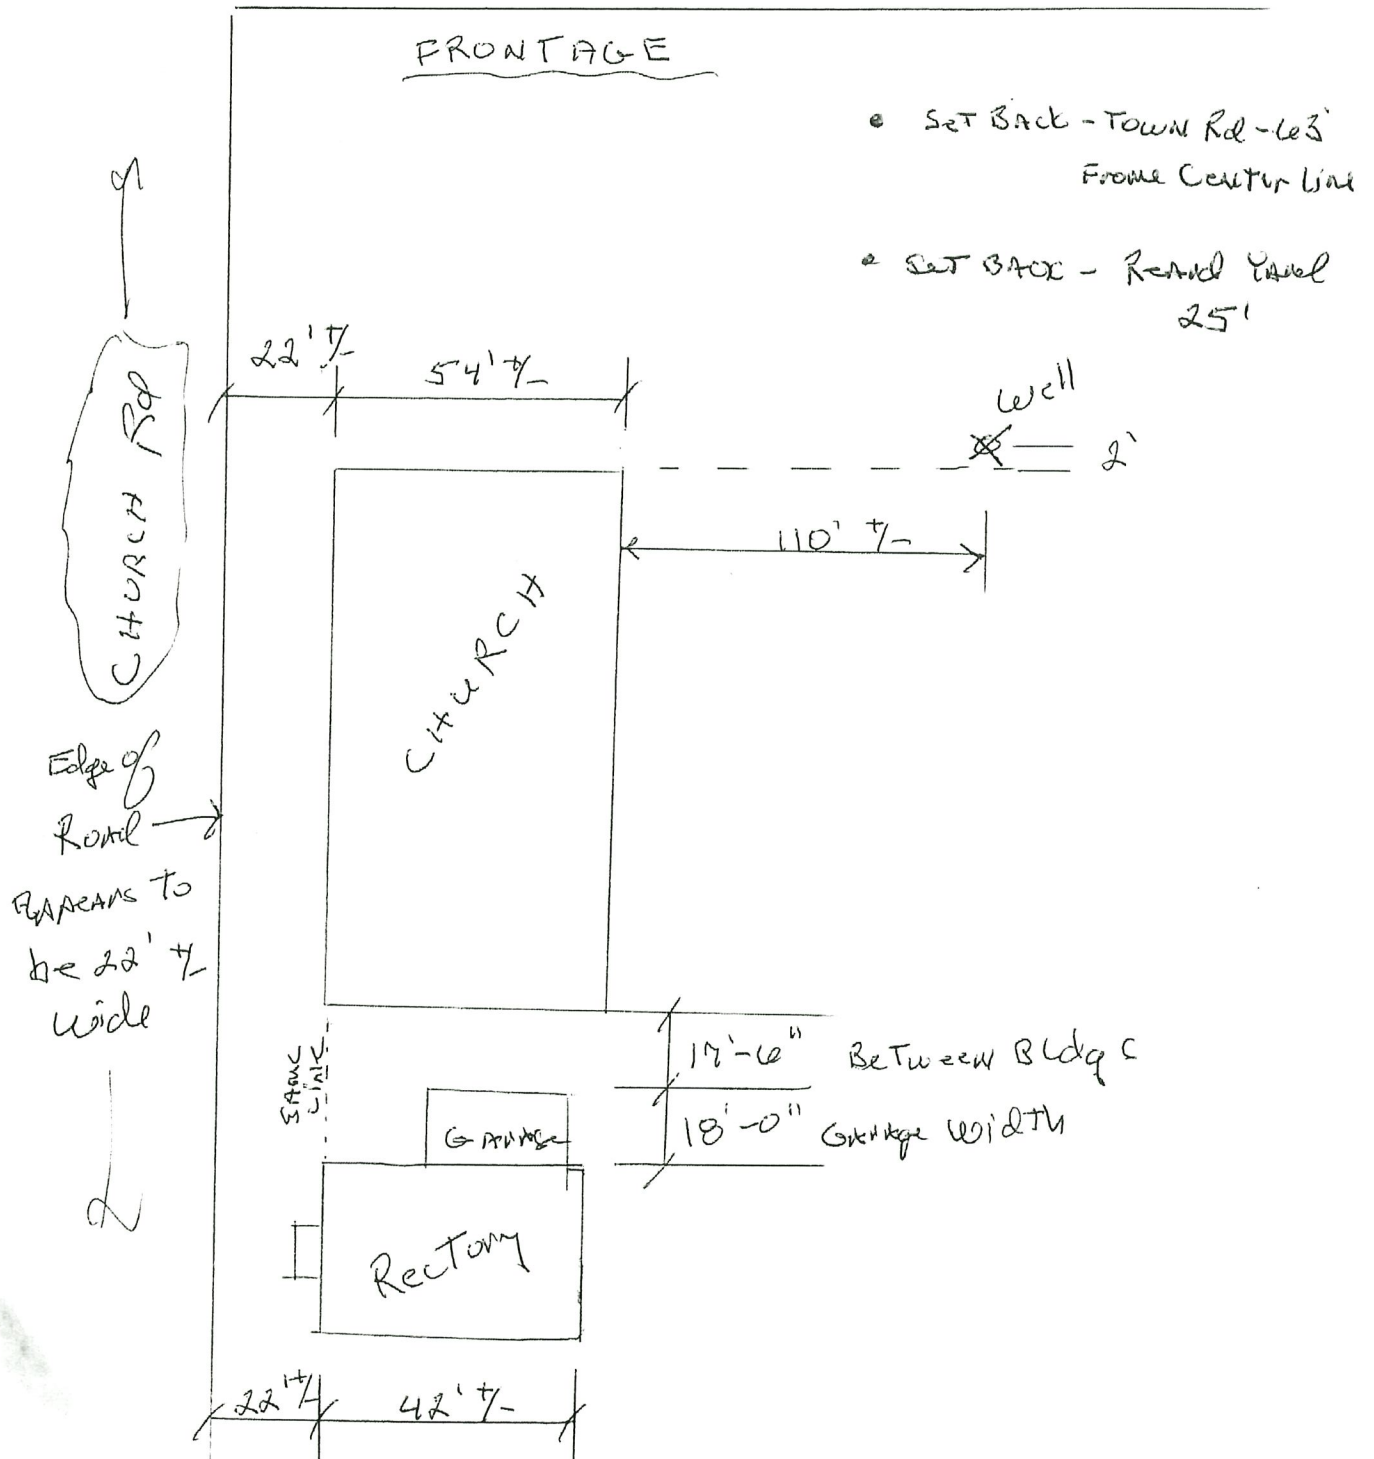 FRONTAGE
• SET BACK - TOWN Rd - 63'
From Center Line
• SET BACK - Yard
25'
22' +/-
54' +/-
Well
2'
110' +/-
CHURCH Rd
CHURCH
Edge of
Road
Appears To
be 22' +/-
wide
SAME
LINE
17'-6" BeTween Bldgs
18'-0" Garage Width
GARAGE
RecTory
22' +/-
42' +/-